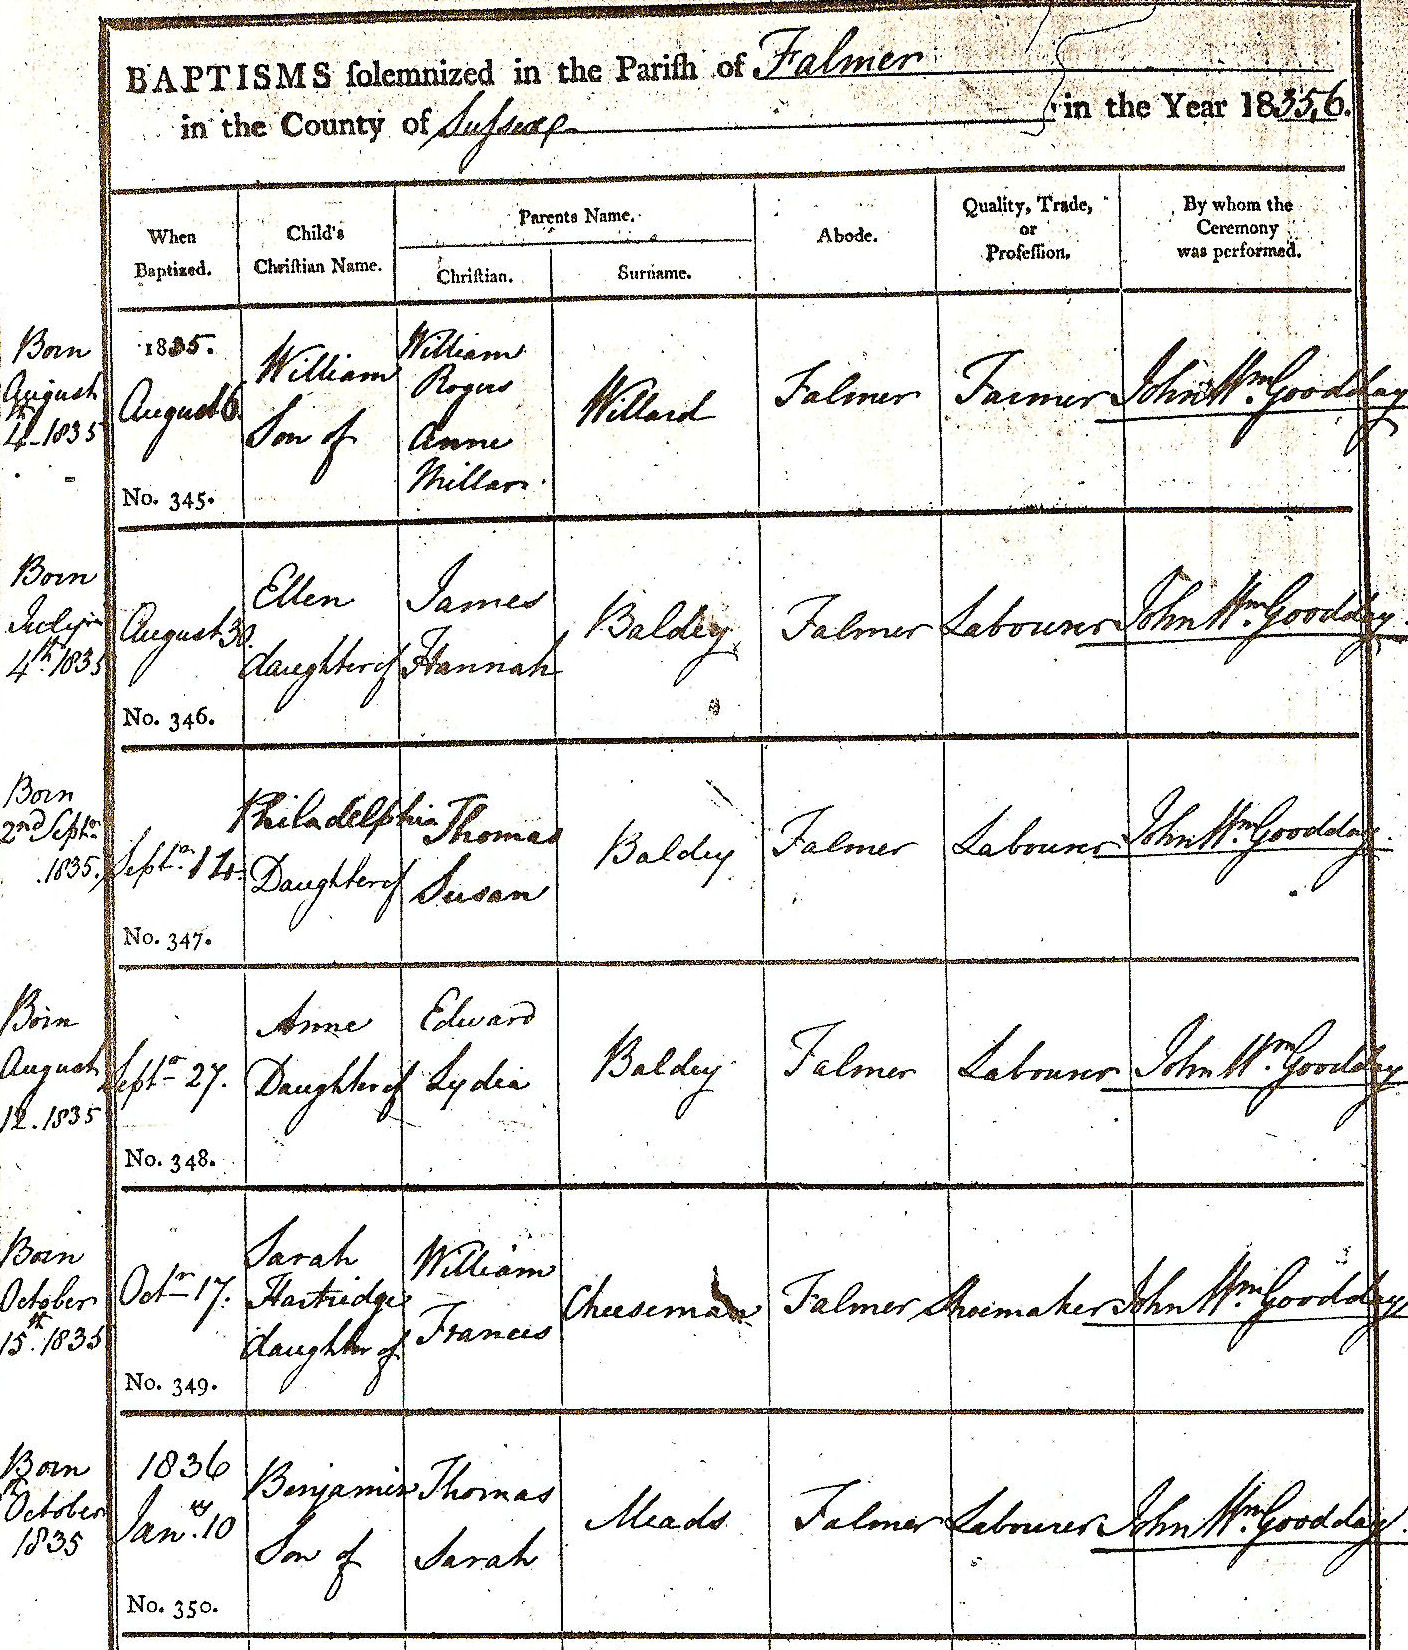 BAPTISMS solemnized in the Parish of Falmer
in the County of Sussex in the Year 1835,6.
When Baptized.
Child's Christian Name.
Parents Name.
Christian.
Surname.
Abode.
Quality, Trade, or Profession.
By whom the Ceremony was performed.
Born
August
4th 1835
1835.
August 6.
No. 345.
William
Son of
William
Rogers
Anne
Millar
Willard
Falmer
Farmer
John Wm. Goodday
Born
July
4th. 1835
August 30.
No. 346.
Ellen
daughter of
James
Hannah
Baldey
Falmer
Labourer
John Wm. Goodday.
Born
2nd Septr.
1835.
Septr. 14.
No. 347.
Philadelphia
Daughter of
Thomas
Susan
Baldey
Falmer
Labourer
John Wm. Goodday.
Born
August
12. 1835
Septr. 27.
No. 348.
Anne
Daughter of
Edward
Lydia
Baldey
Falmer
Labourer
John Wm. Goodday
Born
October
15th. 1835
Octr. 17.
No. 349.
Sarah
Hartridge
daughter of
William
Frances
Cheeseman
Falmer
Shoemaker
John Wm. Goodday
Born
October
1835
1836
Jany. 10
No. 350.
Benjamin
Son of
Thomas
Sarah
Meads
Falmer
Labourer
John Wm. Goodday.